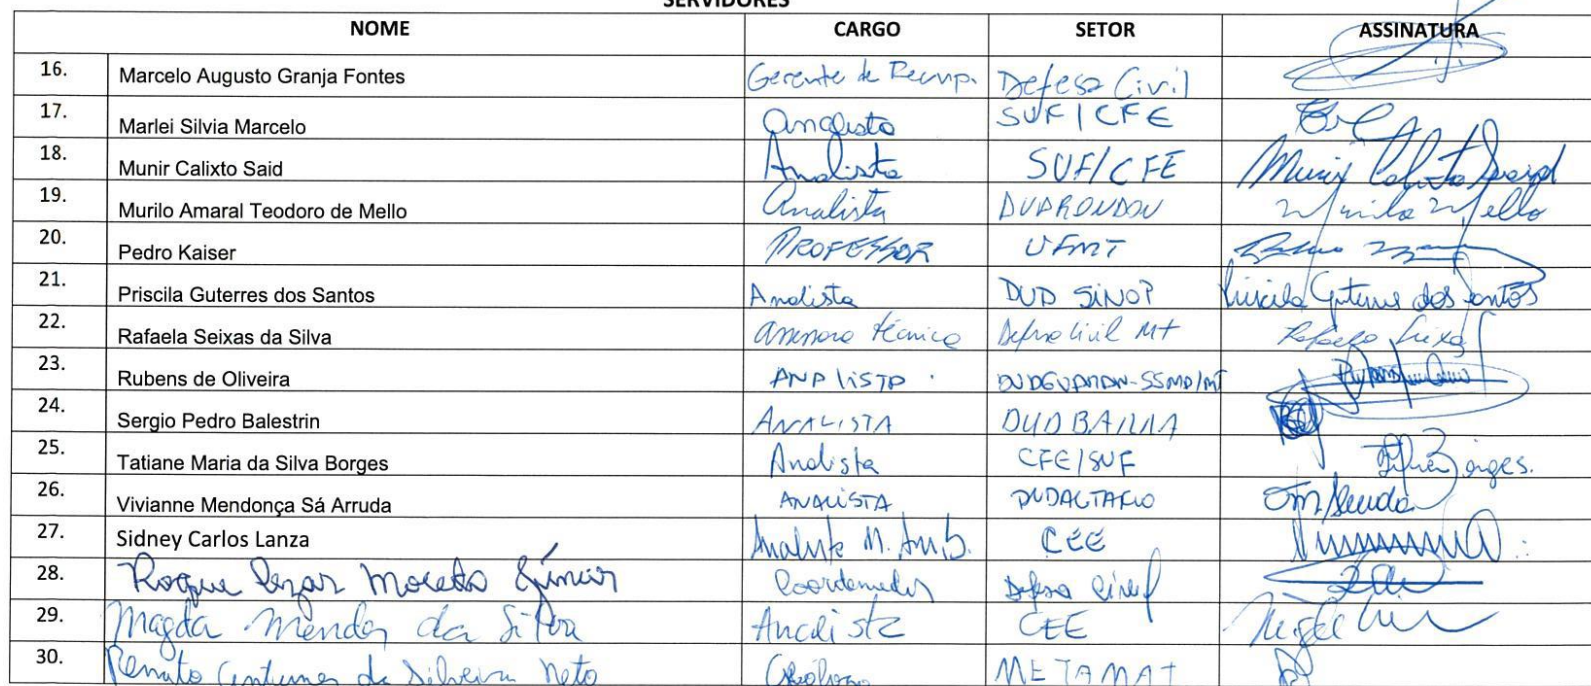 SERVIDORES
NOME CARGO SETOR ASSINATURA
16. Marcelo Augusto Granja Fontes Gerente de Defesa Civil
17. Marlei Silvia Marcelo Analista SUF/CFE
18. Munir Calixto Said Analista SUF/CFE Munir Calixto Said
19. Murilo Amaral Teodoro de Mello Analista DUDRONDON Murilo Mello
20. Pedro Kaiser PROFESSOR UFMT
21. Priscila Guterres dos Santos Analista DUD SINOP Priscila Guterres dos Santos
22. Rafaela Seixas da Silva técnica Defesa Civil MT Rafaela Seixas
23. Rubens de Oliveira ANALISTA
24. Sergio Pedro Balestrin ANALISTA DUD
25. Tatiane Maria da Silva Borges Analista CFE/SUF Borges.
26. Vivianne Mendonça Sá Arruda ANALISTA
27. Sidney Carlos Lanza Analista M. Amb. CEE
28. Roque Cezar Moreto Júnior Coordenador Defesa Civil
29. Magda Mendes da Silva Analista CEE
30. Renato Antunes da Silveira Neto Geólogo METAMAT